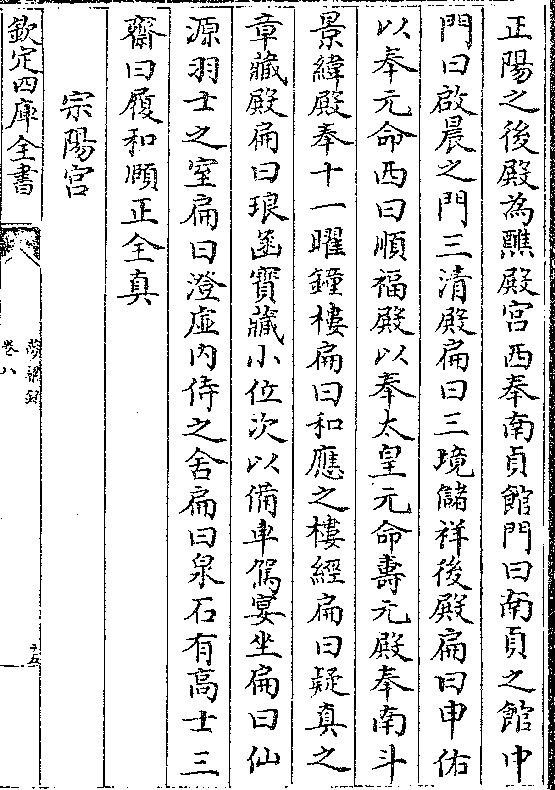 正陽之後殿為醮殿宮西奉南貞館門曰南貞之館中
門曰啟晨之門三清殿扁曰三境儲祥後殿扁曰申佑
以奉元命西曰順福殿以奉太皇元命壽元殿奉南斗
景緯殿奉十一曜鐘樓扁曰和應之樓經扁曰凝真之
章藏殿扁曰琅函寶藏小位次以備車駕宴坐扁曰仙
源羽士之室扁曰澄虛内侍之舍扁曰泉石有高士三
齋曰履和順正全真
宗陽宮
欽定四庫全書
夢粱録
卷八
十五